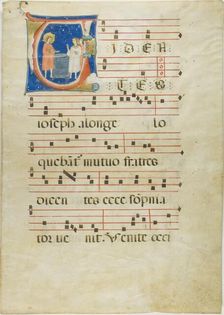 VIDEN
TES
ioseph alonge lo
quebāt mutuo fratres
dicen tes ecce sompnia
tor ue nit. Uenite occi